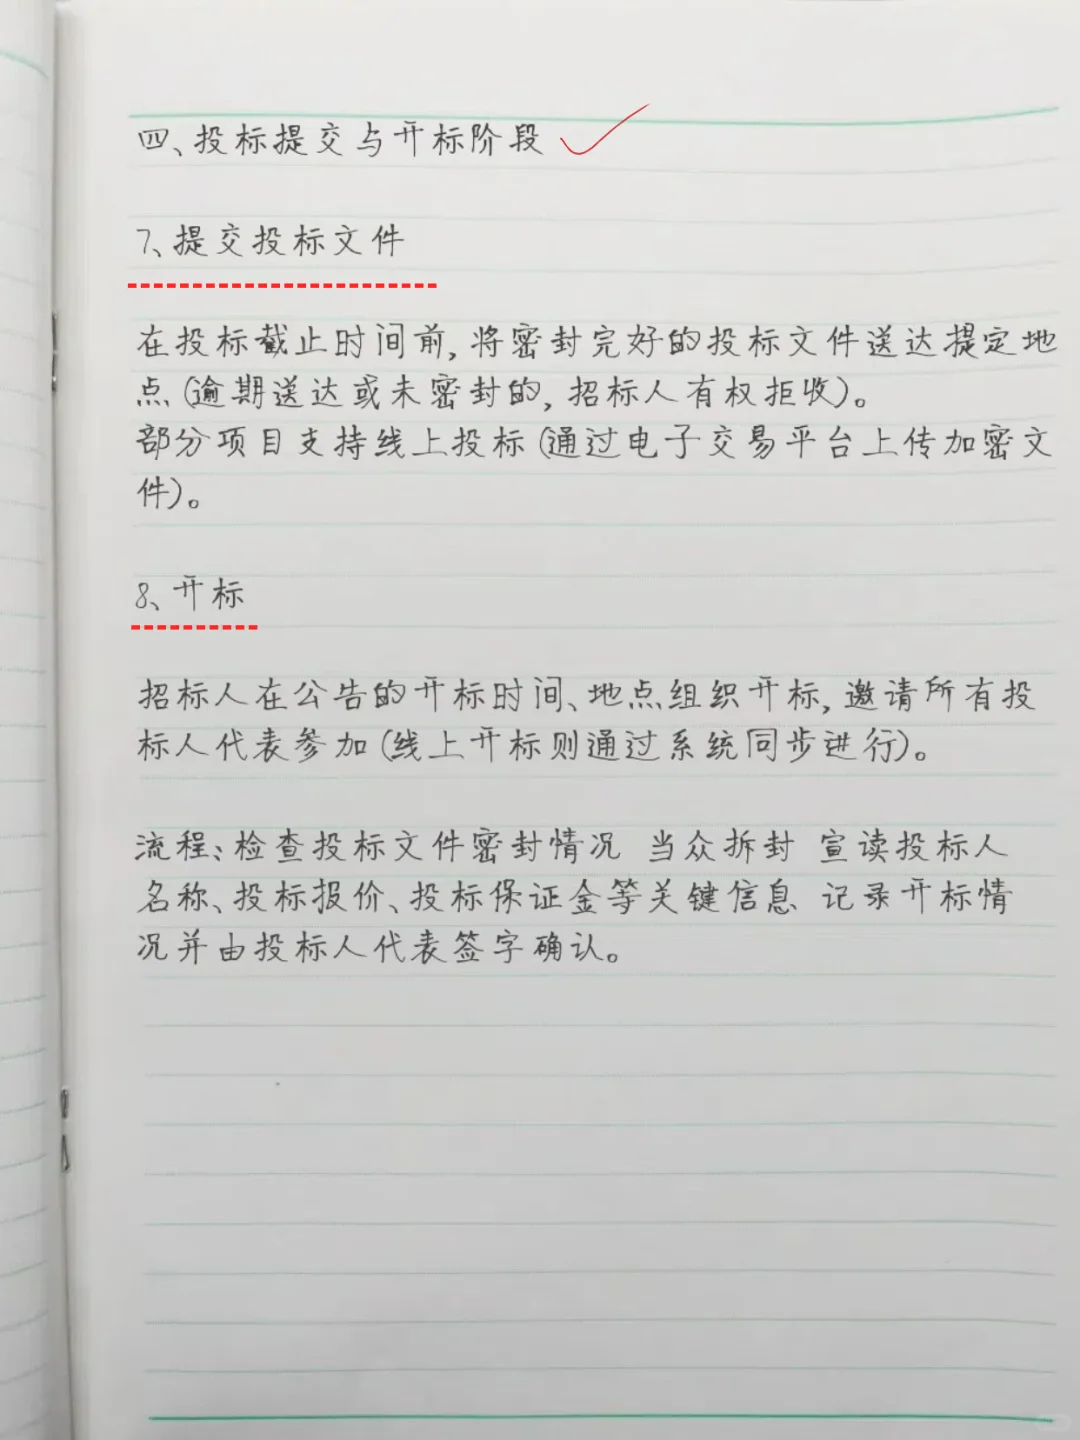 四、投标提交与开标阶段
7、提交投标文件
在投标截止时间前,将密封完好的投标文件送达提定地
点(逾期送达或未密封的,招标人有权拒收)。
部分项目支持线上投标(通过电子交易平台上传加密文
件)。
8、开标
招标人在公告的开标时间、地点组织开标,邀请所有投
标人代表参加(线上开标则通过系统同步进行)。
流程:检查投标文件密封情况 当众拆封 宣读投标人
名称、投标报价、投标保证金等关键信息 记录开标情
况并由投标人代表签字确认。